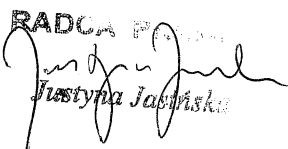 RADCA
Justyna Jasińska